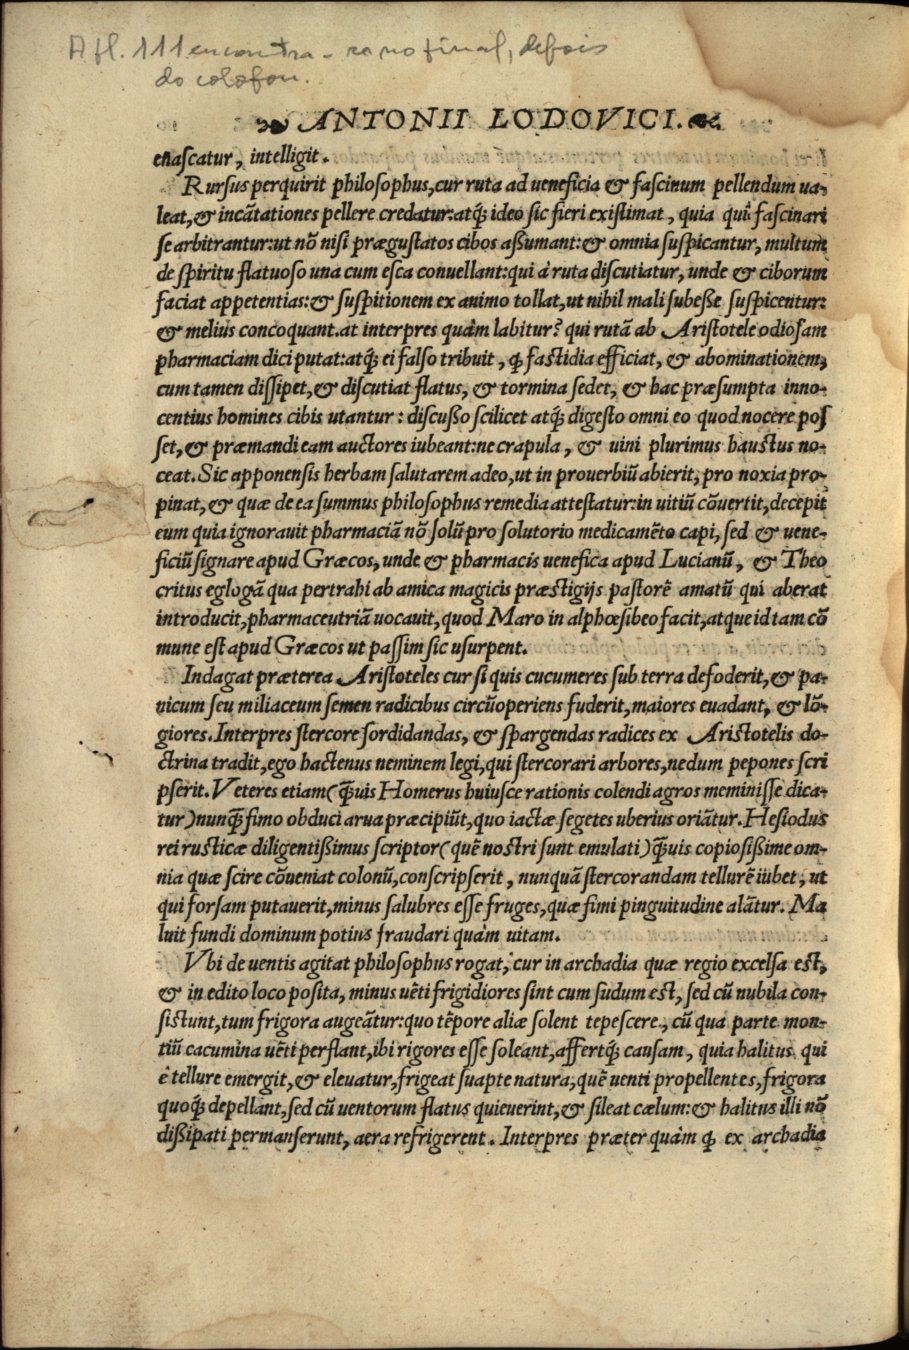 A fl. 111 encontra-se no final, depois
do colofon.
ANTONII LODOVICI.
enascatur, intelligit.
Rursus perquirit philosophus, cur ruta ad ueneficia & fascinum pellendum ua-
leat, & incãtationes pellere credatur: atq́; ideo sic fieri existimat, quia qui fascinari
se arbitrantur: ut nõ nisi prægustatos cibos aßumant: & omnia suspicantur, multum
de spiritu flatuoso una cum esca conuellant: qui à ruta discutiatur, unde & ciborum
faciat appetentias: & suspitionem ex animo tollat, ut nihil mali subeße suspicentur:
& melius concoquant. at interpres quàm labitur? qui rutã ab Aristotele odiosam
pharmaciam dici putat: atq́; ei falso tribuit, ꝙ fastidia efficiat, & abominationem,
cum tamen dissipet, & discutiat flatus, & tormina sedet, & hac præsumpta inno-
centius homines cibis utantur: discußo scilicet atq́; digesto omni eo quod nocere pos
set, & præmandi eam auctores iubeant: ne crapula, & uini plurimus haustus no-
ceat. Sic apponensis herbam salutarem adeo, ut in prouerbiũ abierit, pro noxia pro-
pinat, & quæ de ea summus philosophus remedia attestatur: in uitiũ cõuertit, decepit
eum quia ignorauit pharmaciã nõ solũ pro solutorio medicamẽto capi, sed & uene-
ficiũ signare apud Græcos, unde & pharmacis uenefica apud Lucianũ, & Theo
critus eglogã qua pertrahi ab amica magicis præstigijs pastorẽ amatũ qui aberat
introducit, pharmaceutriã uocauit, quod Maro in alphœsibeo facit, atque id tam cõ
mune est apud Græcos ut passim sic usurpent.
Indagat præterea Aristoteles cur si quis cucumeres sub terra defoderit, & pa-
nicum seu miliaceum semen radicibus circũoperiens fuderit, maiores euadant, & lõ-
giores. Interpres stercore sordidandas, & spargendas radices ex Aristotelis do-
ctrina tradit, ego hactenus neminem legi, qui stercorari arbores, nedum pepones scri
pserit. Veteres etiam (q̃uis Homerus huiusce rationis colendi agros meminisse dica-
tur) nunq̃ fimo obduci arua præcipiũt, quo iactæ segetes uberius oriãtur. Hesiodus
rei rusticæ diligentißimus scriptor (quẽ nostri sunt emulati) q̃uis copiosißime om-
nia quæ scire cõueniat colonũ, conscripserit, nunquã stercorandam tellurẽ iubet, ut
qui forsam putauerit, minus salubres esse fruges, quæ fimi pinguitudine alãtur. Ma
luit fundi dominum potius fraudari quàm uitam.
Vbi de uentis agitat philosophus rogat, cur in archadia quæ regio excelsa est,
& in edito loco posita, minus uẽti frigidiores sint cum sudum est, sed cũ nubila con-
sistunt, tum frigora augeãtur: quo tẽpore aliæ solent tepescere, cũ qua parte mon-
tiũ cacumina uẽti perflant, ibi rigores esse soleant, affertq́; causam, quia halitus qui
è tellure emergit, & eleuatur, frigeat suapte natura, quẽ uenti propellentes, frigora
quoq́; depellant, sed cũ uentorum flatus quieuerint, & sileat cælum: & halitus illi nõ
dißipati permanserunt, aera refrigerent. Interpres præter quàm ꝙ ex archadia